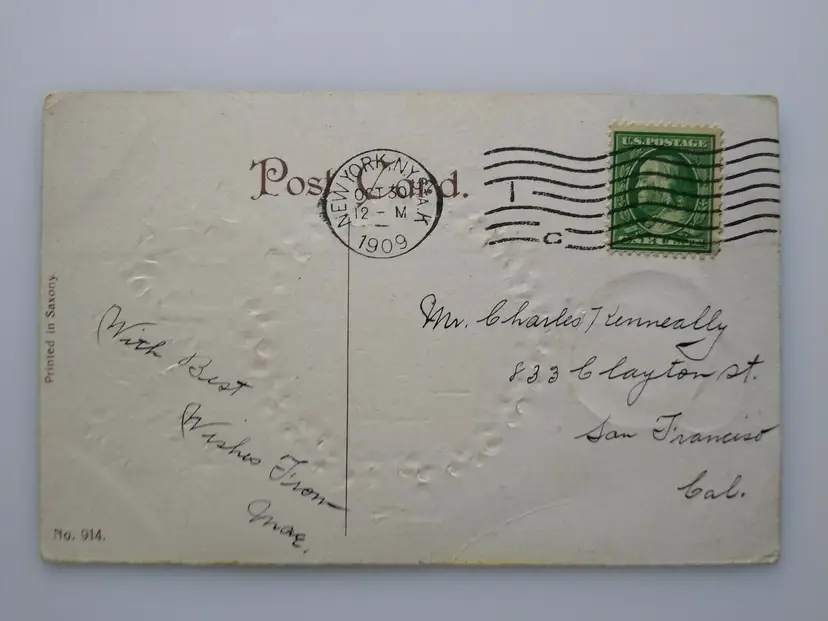 Post Card.
NEW YORK, N.Y. STA. K
OCT 30
12 - M
1909
U.S. POSTAGE
Printed in Saxony.
With Best
Wishes From
Mae.
Mr. Charles Kenneally
833 Clayton st.
San Franciso
Cal.
No. 914.